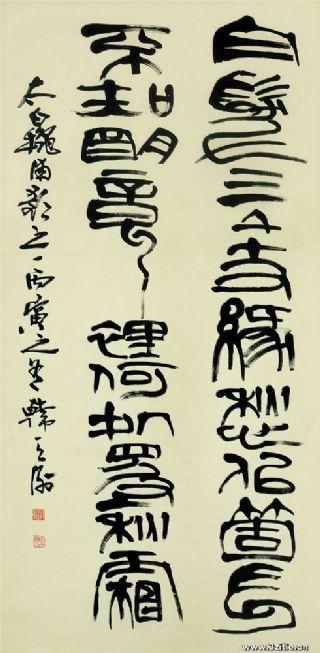 白髮三千丈緣愁似箇長
不知明竟裡何處得秋霜
太白秋浦歌之一丙寅之韓天衡